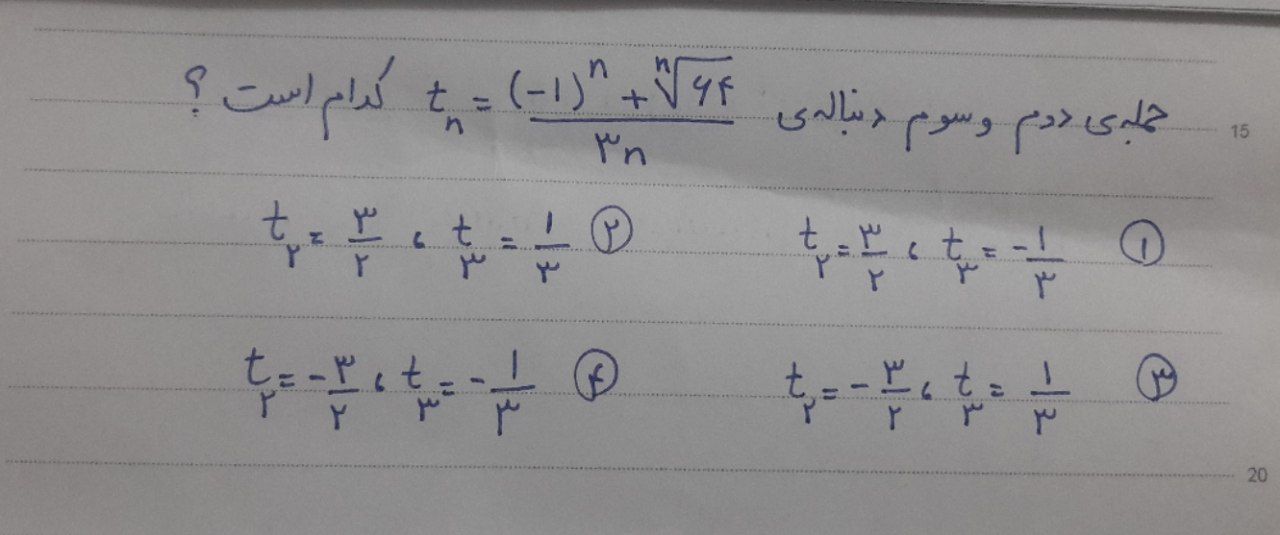 جمله‌ی دوم و سوم دنباله‌ی tₙ = ((-۱)ⁿ + ⁿ√۶۴) / ۳n کدام است ؟
15
① t₂ = ۳/۲ ، t₃ = -۱/۳ ② t₂ = ۳/۲ ، t₃ = ۱/۳
③ t₂ = -۳/۲ ، t₃ = ۱/۳ ④ t₂ = -۳/۲ ، t₃ = -۱/۳
20